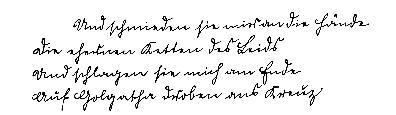 Und schmieden sie mir an die Hände
Die ehernen Ketten des Leids
Und schlagen sie mich am Ende
Auf Golgatha droben ans Kreuz